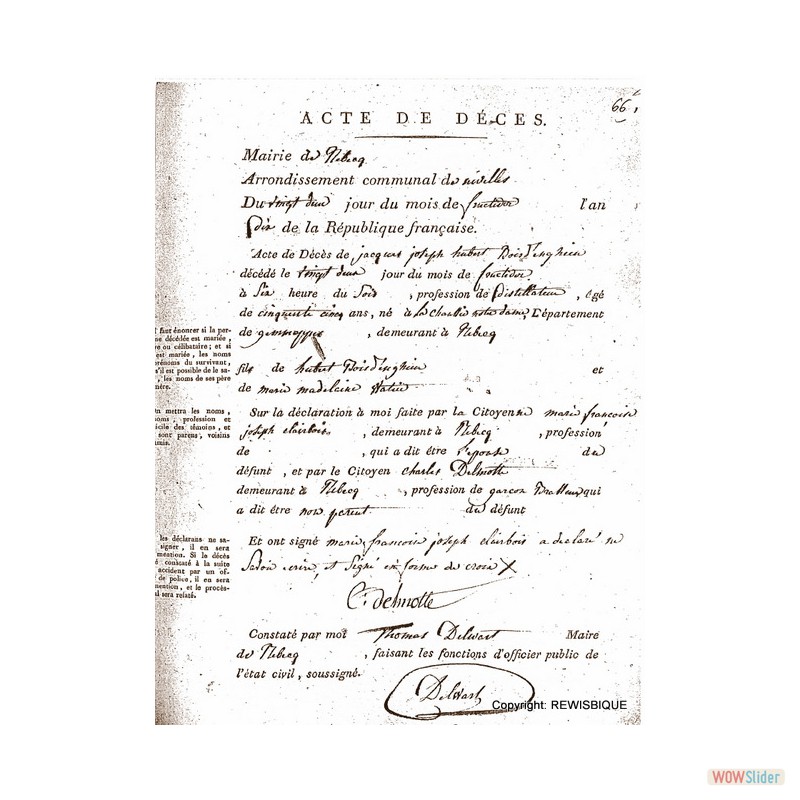 66
ACTE DE DÉCES.
Mairie de Rebecq
Arrondissement communal de nivelles
Du vingt deux jour du mois de fructidor l'an
Dix de la République française.
Acte de Décès de jacques joseph hubert Boisd'enghien
décédé le vingt deux jour du mois de fructidor
à Six heure du Soir, profession de distillateur, âgé
de cinquante cinq ans, né à notre dame, Département
de gemmappes, demeurant à Rebecq
fils de hubert Boisd'enghien et
de marie madelaine
Sur la déclaration à moi faite par la Citoyenne marie françoise
joseph clairbois, demeurant à Rebecq, profession
de , qui a dit être l'epouse du
défunt, et par le Citoyen charles Delmotte
demeurant à Rebecq, profession de garcon Brasseur qui
a dit être non parent du défunt
Et ont signé marie francoise joseph clairbois a declaré ne
Savoir ecrire, et Signé en forme de croix X
C: delmotte
Constaté par moi Thomas Delwart Maire
de Rebecq, faisant les fonctions d'officier public de
l'état civil, soussigné.
Delwart
faut énoncer si la per-
ne décédée est mariée,
ve ou célibataire; et si
est mariée, les noms
prénoms du survivent,
s'il est possible de le sa-
, les noms de ses père
mère.
n mettra les noms,
noms, profession et
icile des témoins, et
sont parens, voisins
amis.
les déclarans ne sa-
signer, il en sera
mention. Si le décès
constaté à la suite
accident par un of-
de police, il en sera
mention, et le procès-
al sera relaté.
Copyright: REWISBIQUE
WOWSlider